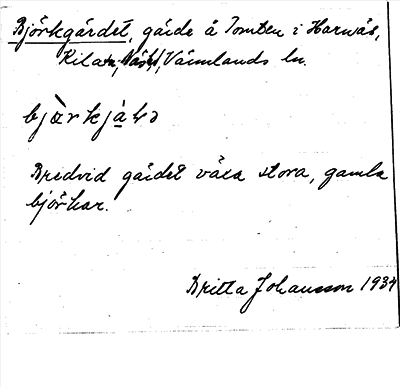 Björkgärdet, gärde å Tomten i Harnäs,
Kila, Värmlands ln.
Bredvid gärdet växa stora, gamla
björkar.
Britta Johansson 1934